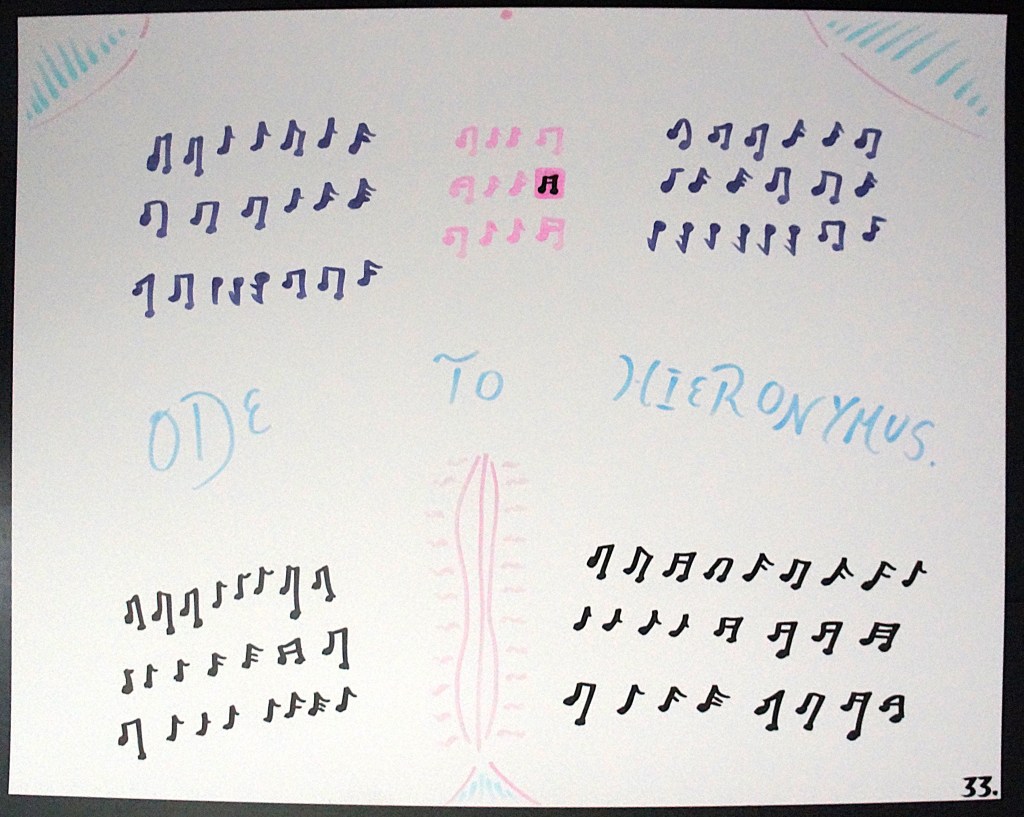 ODE TO HIERONYMUS.
33.